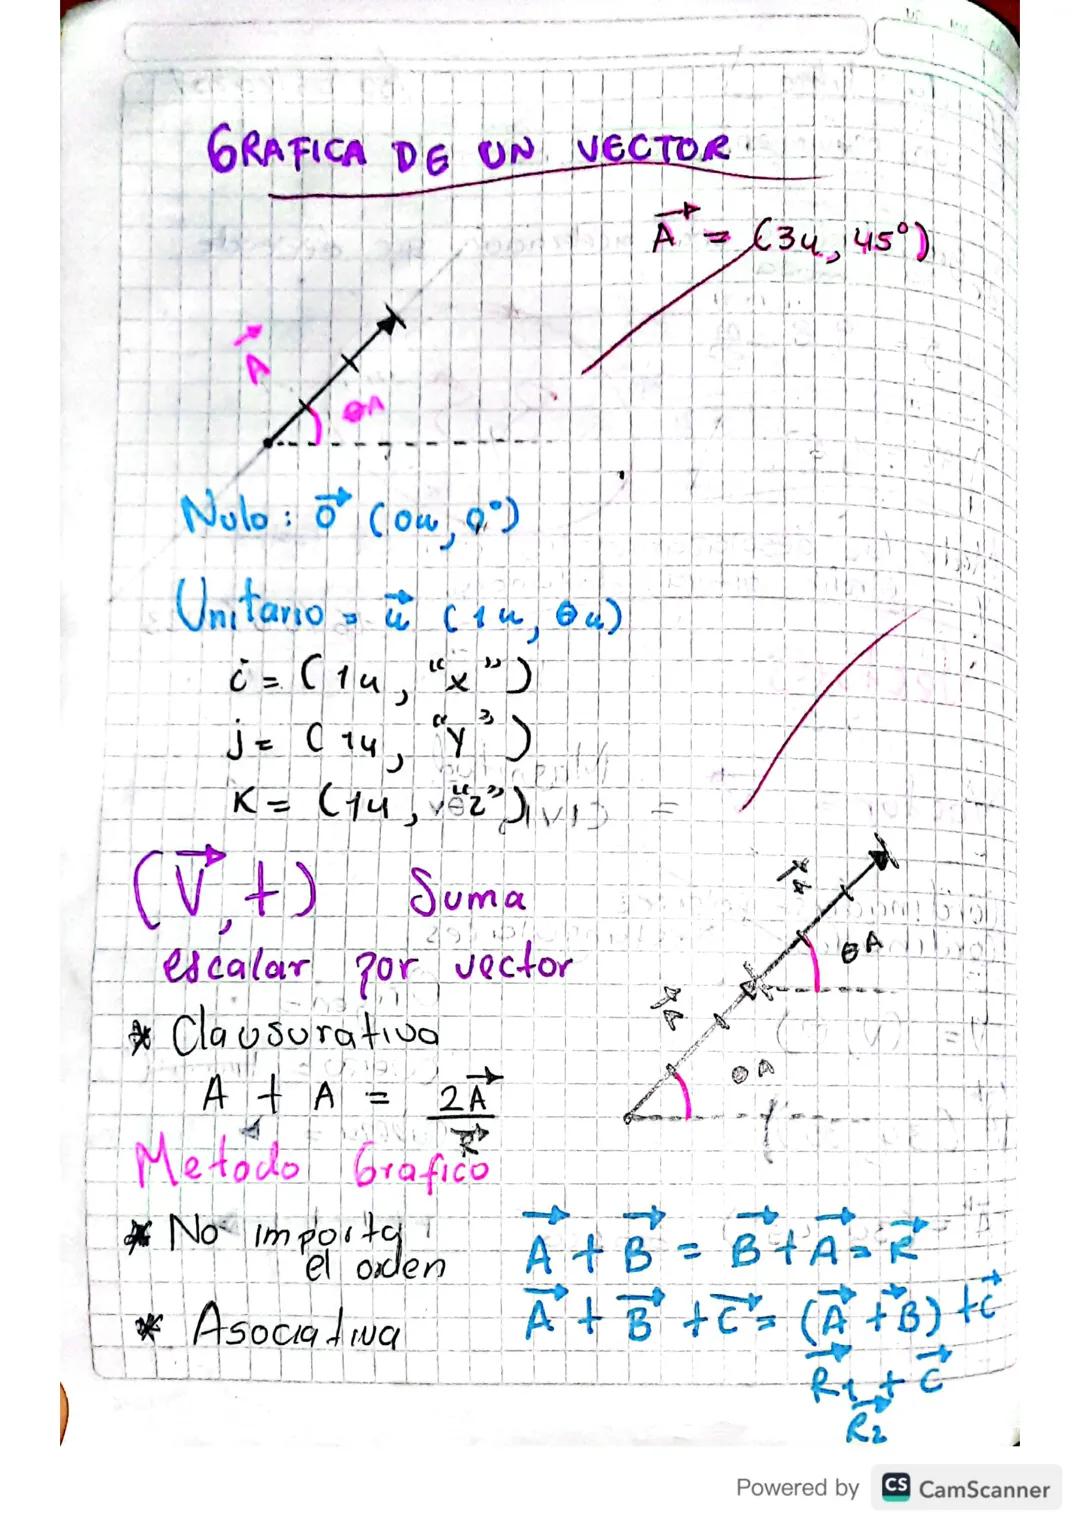 GRAFICA DE UN VECTOR
A⃗ = (3u, 45°)
A⃗
θA
Nulo: 0⃗ (0u, 0°)
Unitario = u⃗ (1u, θu)
i = (1u, "x")
j = (1u, "Y")
K = (1u, "z")
(V⃗, +) Suma
escalar por vector
A⃗
θA
A⃗
θA
* Clausurativa
A + A = 2A⃗
R⃗
Metodo Grafico
* No importa
el orden
A⃗ + B⃗ = B⃗ + A⃗ = R⃗
* Asociativa
A⃗ + B⃗ + C⃗ = (A⃗ + B⃗) + C⃗
R⃗1 + C⃗
R⃗2
Powered by CS CamScanner